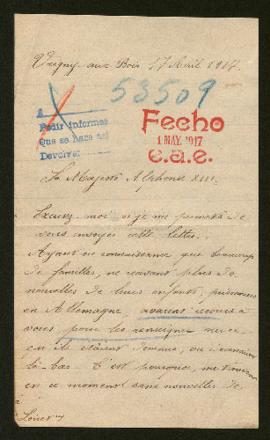 Vrigny aux Bois 17 Avril 1917.
53509
A
Pedir informes
que se hace así
Devolver
Fecho
1 MAY. 1917
c.a.e.
Sa Majesté Alphonse XIII.
Excusez-moi si je me permets de
vous envoyer cette lettre.
Ayant eu connaissance que beaucoup
de familles, ne recevant plus de
nouvelles de leurs enfants, prisonniers
en Allemagne, avaient recours à
vous pour les renseigner
ils étaient
là-bas. C'est pourquoi, me trouvant
en ce moment sans nouvelles de